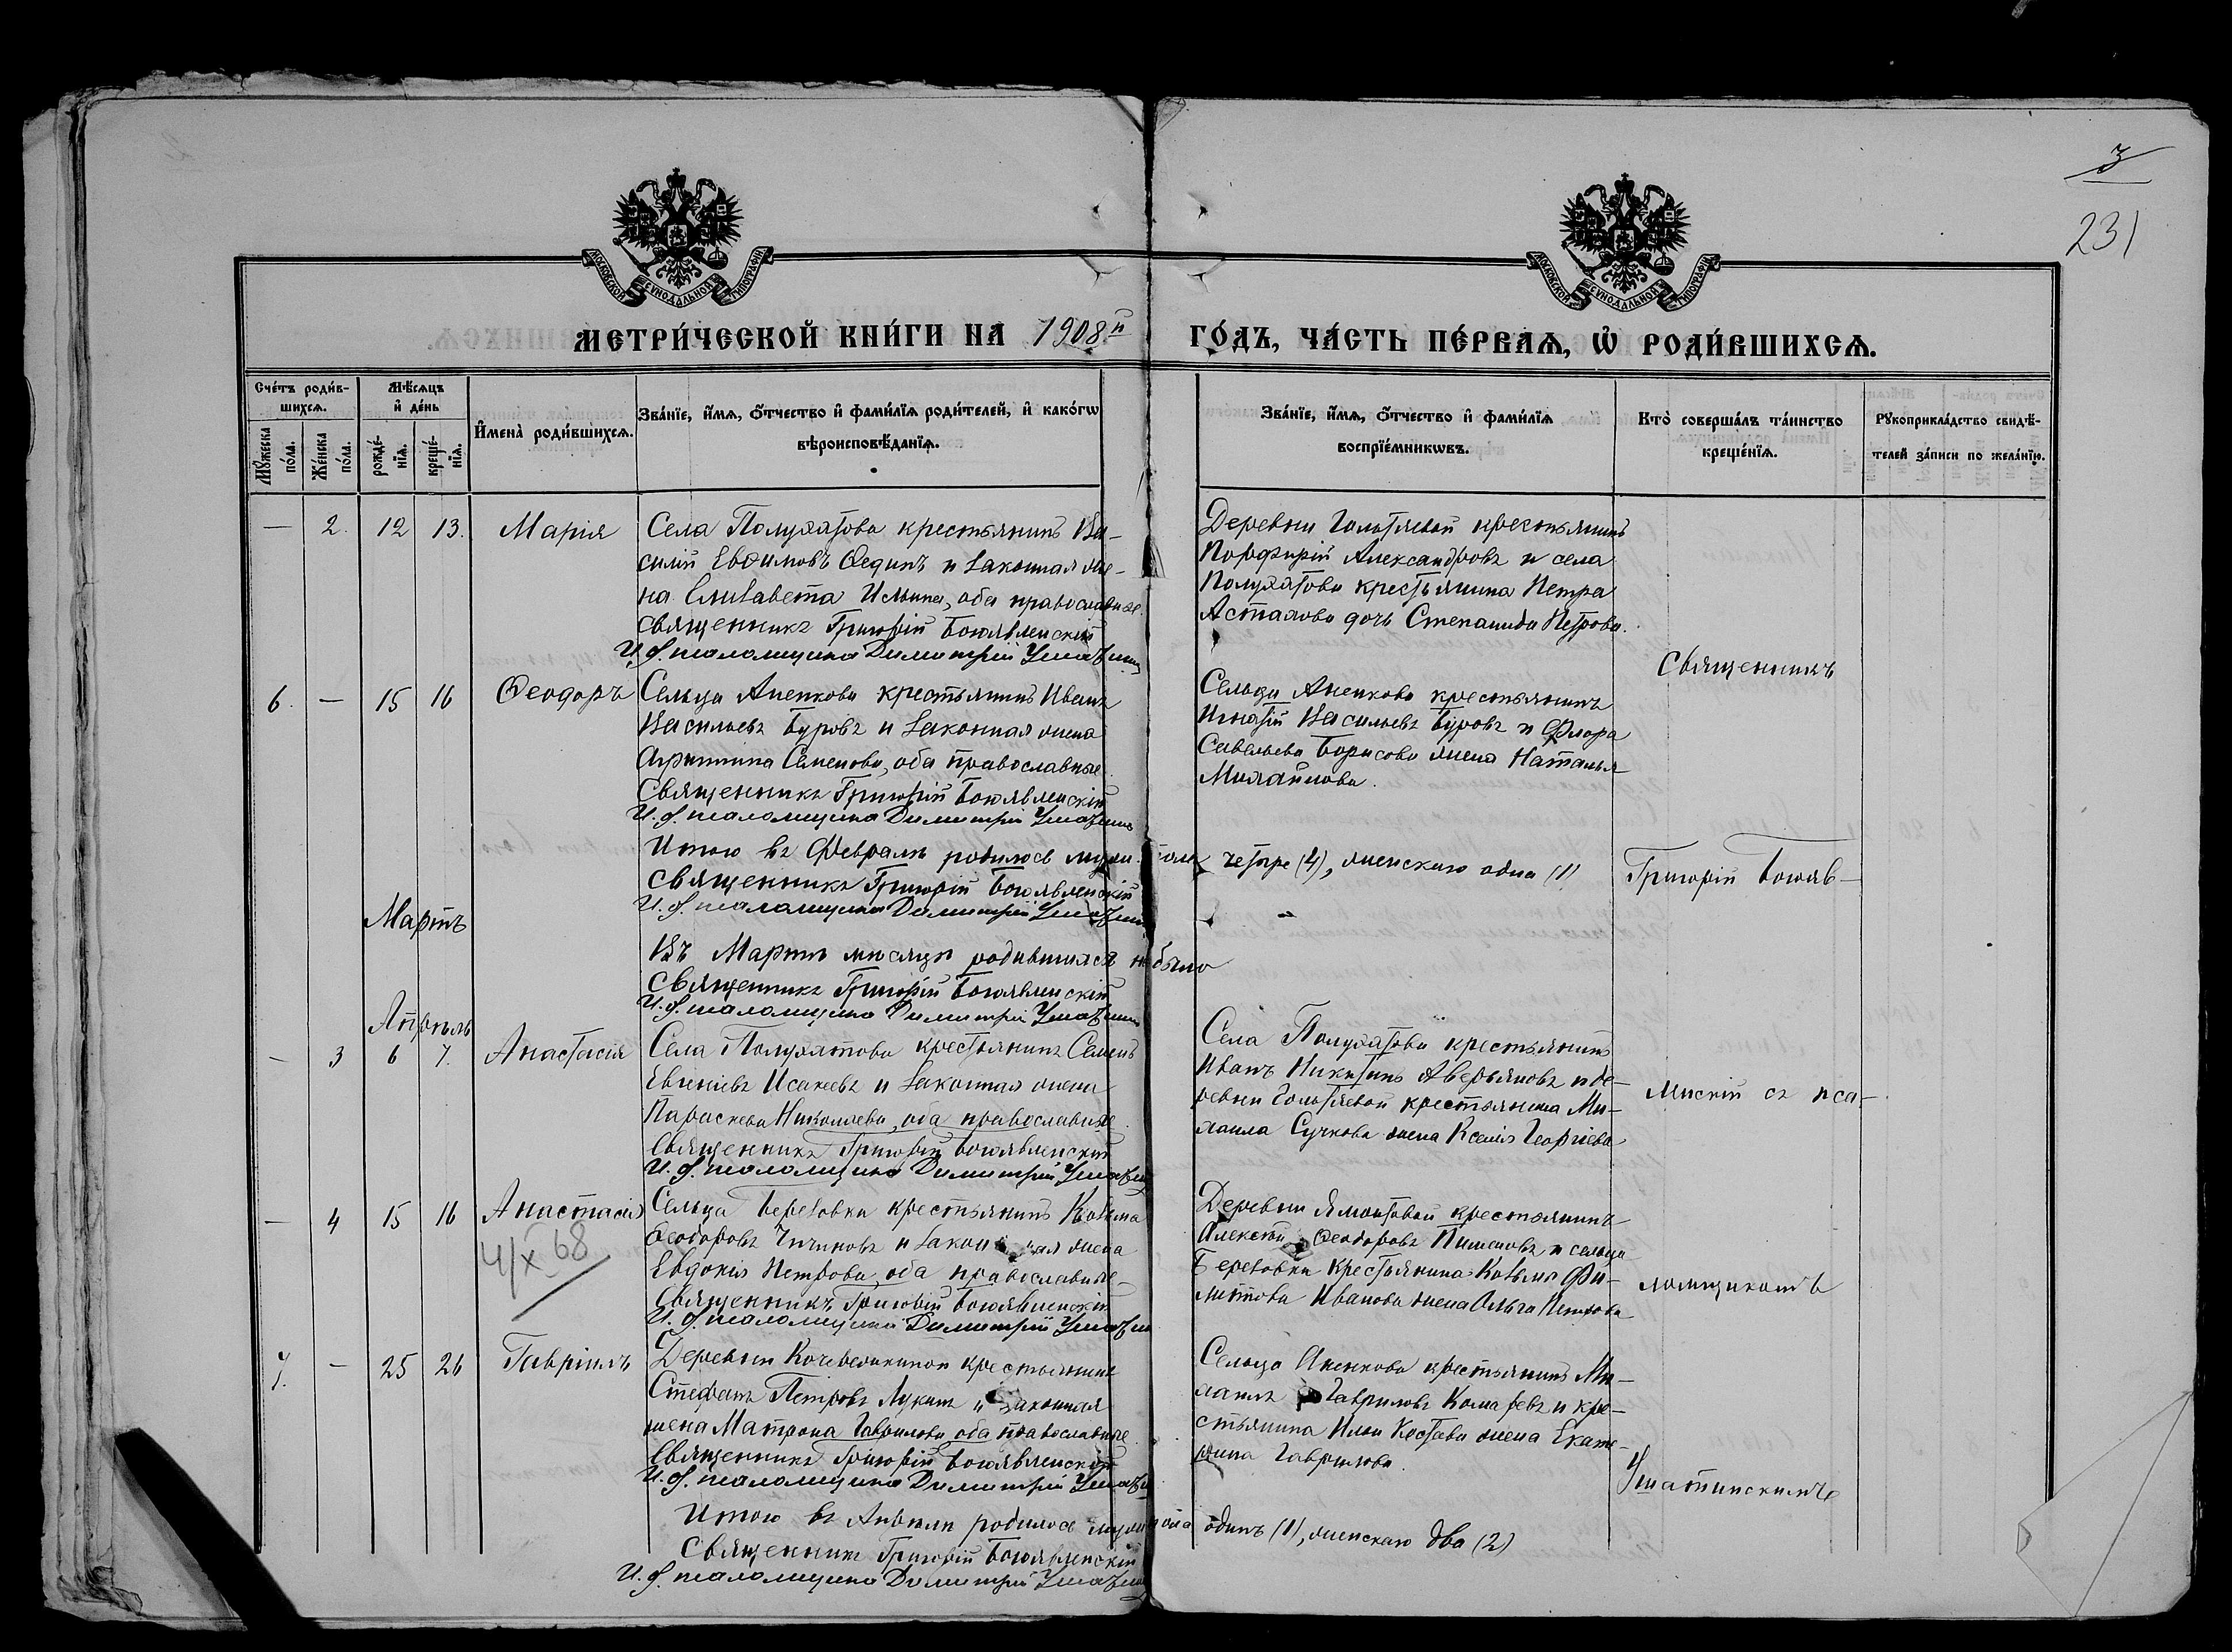 3
231
МОСКОВСКОЙ СѴНОДАЛЬНОЙ ТИПОГРАФІИ
МОСКОВСКОЙ СѴНОДАЛЬНОЙ ТИПОГРАФІИ
МЕТРИ́ЧЕСКОЙ КНИ́ГИ НА 1908й ГО́ДЪ, ЧА́СТЬ ПЕ́РВАѦ, Ѡ҆ РОДИ́ВШИХСѦ.
Сче́тъ роди́в-
шихсѧ.
Мѣ́сѧцъ
и҆ де́нь
Мꙋ́жеска
по́ла.
Же́нска
по́ла.
рожде́-
нїѧ.
креще́-
нїѧ.
И҆мена̀ роди́вшихсѧ.
Зва́нїе, и҆́мѧ, ѻ҆́тчество и҆ фами́лїѧ роди́телей, и҆ како́гѡ
вѣроисповѣ́данїѧ.
Зва́нїе, и҆́мѧ, ѻ҆́тчество и҆ фами́лїѧ
воспрїе́мникѡвъ.
Кто̀ соверша́лъ та́инство
креще́нїѧ.
Рꙋкоприкла́дство свидѣ́-
телей за́писи по жела́нїю.
— 2. 12 13. Марія
Села Полухятова крестьянинъ Ва-
силій Евѳимовъ Ѳединъ и законная же-
на Елизавета Ильина, оба православные.
Священникъ Григорій Богоявленскій
И. д. псаломщика Димитрій
Деревни Гольтяевой крестьянинъ
Порфирій Александровъ и села
Полухятова крестьянина Петра
Астахова дочь Степанида Петрова.
6. — 15 16 Ѳеодоръ
Сельца Аненкова крестьянинъ Иванъ
Васильевъ Буровъ и законная жена
Агриппина Семенова, оба православные.
Священникъ Григорій Богоявленскій
И. д. псаломщика Димитрій
Сельца Аненкова крестьянинъ
Игнатій Васильевъ Буровъ и Флора
Савельева Борисова жена Наталья
Михайлова.
Итого въ Февралѣ родилось муж. пола четыре (4), женскаго одна (1)
Священникъ Григорій Богоявленскій
И. д. псаломщика Димитрій
Мартъ
Въ Мартѣ мѣсяцѣ родившихся не было
Священникъ Григорій Богоявленскій
И. д. псаломщика Димитрій
Апрѣль
— 3 6 7. Анастасія
Села Полухятова крестьянинъ Семенъ
Евгеніевъ Исакеевъ и законная жена
Параскева Николаева, оба православные.
Священникъ Григорій Богоявленскій
И. д. псаломщика Димитрій
Села Полухятова крестьянинъ
Иванъ Никитинъ Аверьяновъ и де-
ревни Гольтяевой крестьянина Ми-
хаила Сучкова жена Ксенія Георгіева
— 4 15 16 Анастасія
4/X 68
Сельца Березовки крестьянинъ Козьма
Ѳеодоровъ Чичиковъ и законная жена
Евдокія Петрова, оба православные
Священникъ Григорій Богоявленскій
И. д. псаломщика Димитрій
Деревни крестьянинъ
Алексѣй Ѳеодоровъ Пименовъ и сельца
Березовки крестьянина Козьмы Фи-
липпова Иванова жена Ольга Петрова
7. — 25 26 Гавріилъ
Деревни крестьянинъ
Стефанъ Петровъ Лукинъ и законная
жена Матрона Гаврилова оба православные.
Священникъ Григорій Богоявленскій
И. д. псаломщика Димитрій
Сельца Аненкова крестьянинъ Ми-
хаилъ Гавриловъ Комаревъ и кре-
стьянина Ильи Костова жена Екате-
рина Гаврилова.
Итого въ Апрѣлѣ родилось муж. пола одинъ (1), женскаго два (2)
Священникъ Григорій Богоявленскій
И. д. псаломщика Димитрій
Священникъ
Григорій Богояв-
ленскій съ пса-
ломщикомъ
Ушатинскимъ